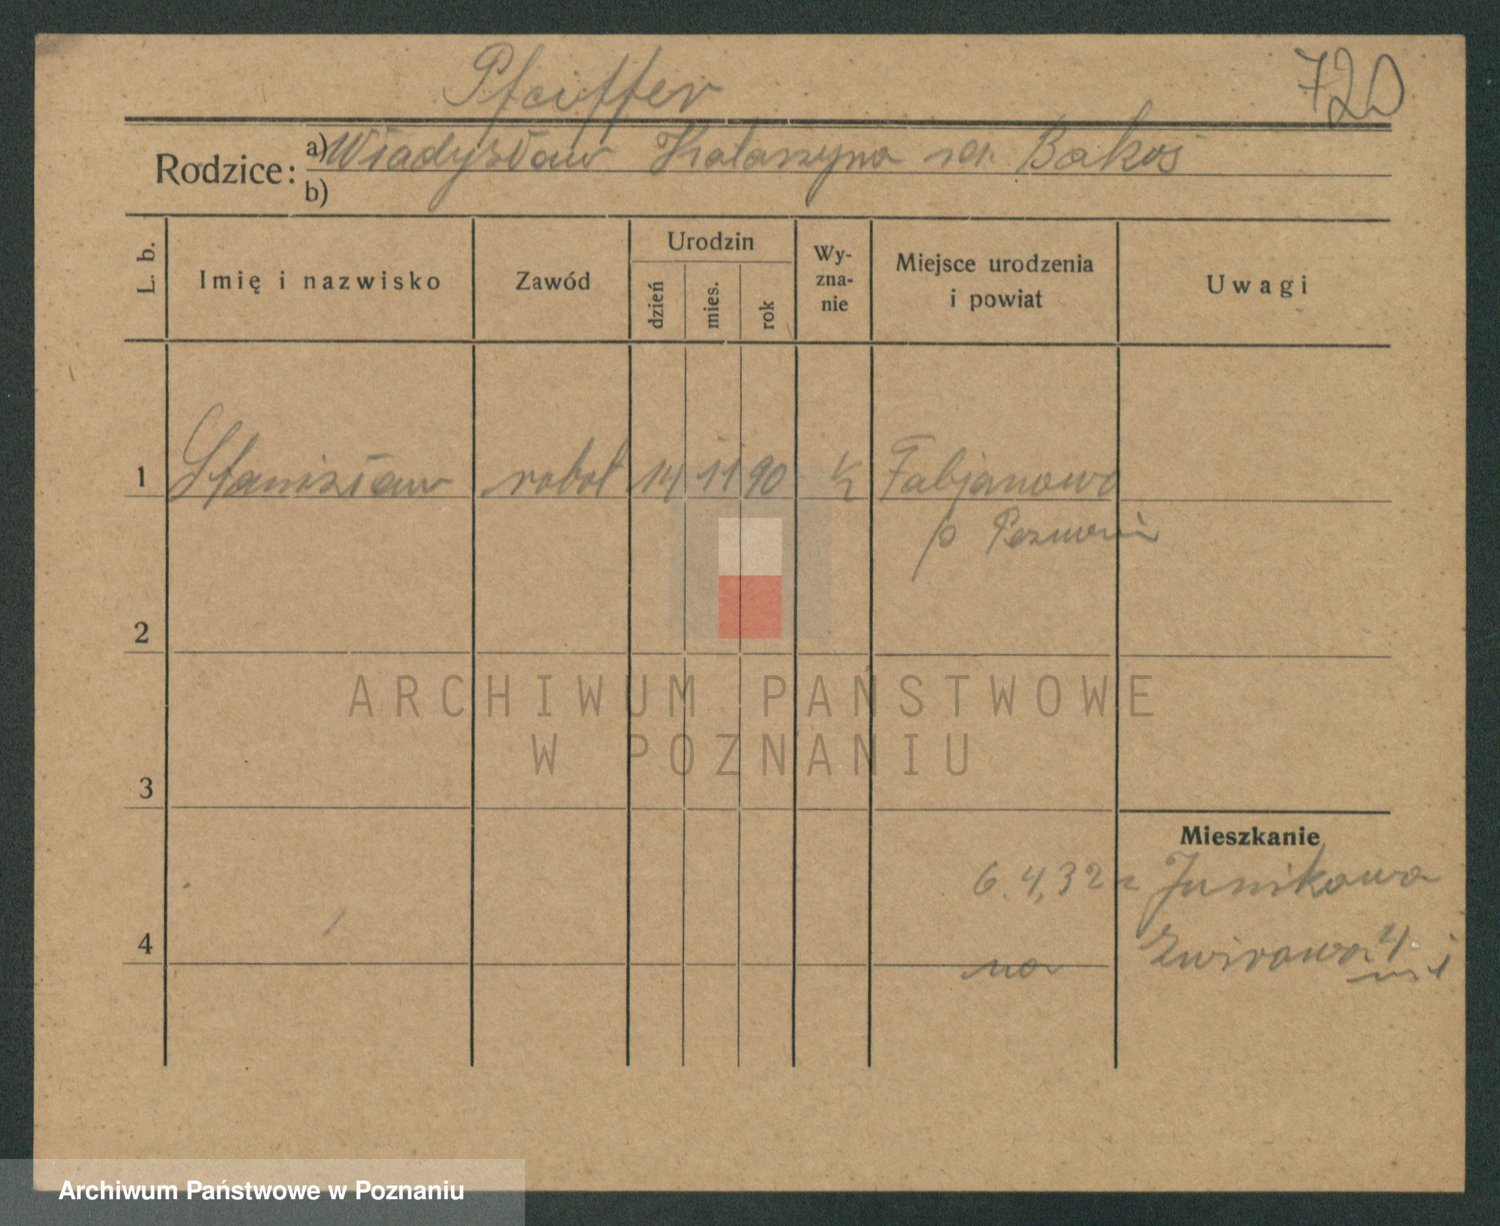 Pfeiffer
720
Rodzice:
a) Władysław Katarzyna Bakoś
b)
L. b.
Imię i nazwisko
Zawód
Urodzin
dzień
mies.
rok
Wy-
zna-
nie
Miejsce urodzenia
i powiat
Uwagi
1 Stanisław robot 14 11 90 k Fabjanowo
p Poznań
2
ARCHIWUM PAŃSTWOWE
W POZNANIU
3
Mieszkanie
6.4.32 z Junikowa
4
na Żwirowa 4
Archiwum Państwowe w Poznaniu